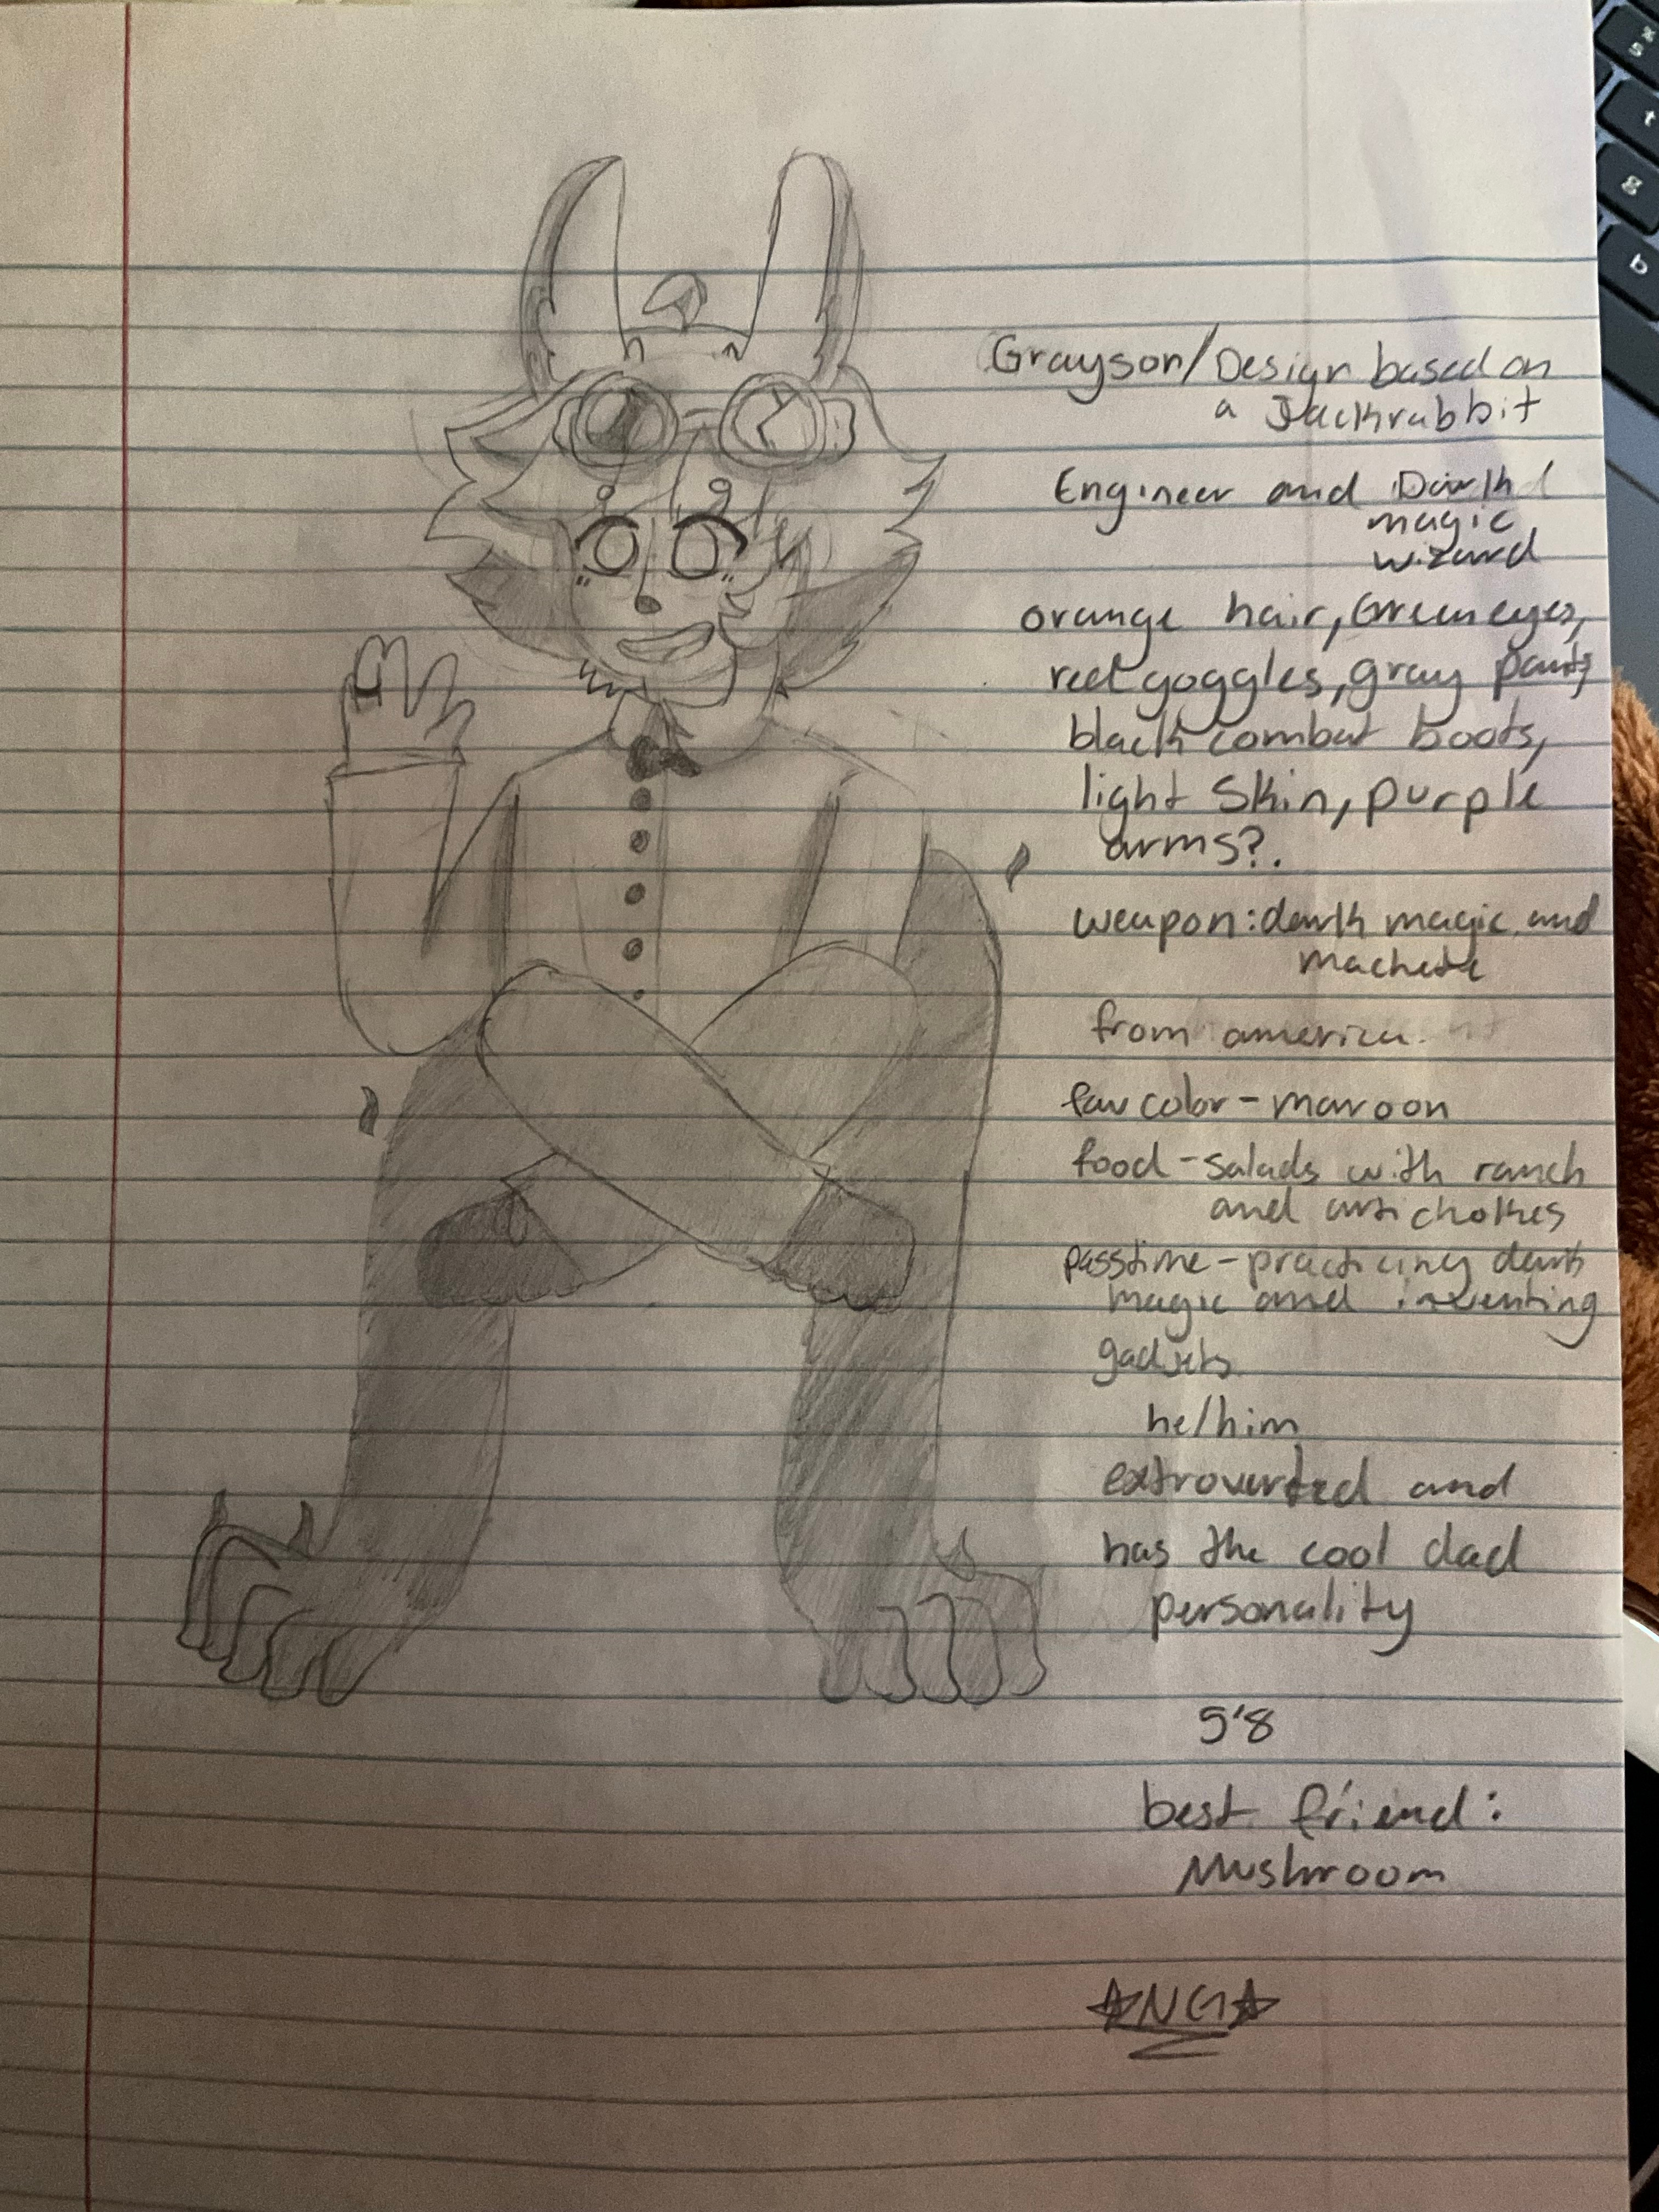 Grayson/Design based on
a Jackrabbit
Engineer and Dark
magic
wizard
orange hair, Green eyes,
red goggles, gray pants,
black combat boots,
light skin, purple
arms?.
weapon: dark magic and
machete
from america.
fav color - maroon
food - salads with ranch
and artichokes
passtime - practicing dark
magic and inventing
gadjets
he/him
extroverted and
has the cool dad
personality
5'8
best friend:
Mushroom
☆NG☆
5
t
g
b